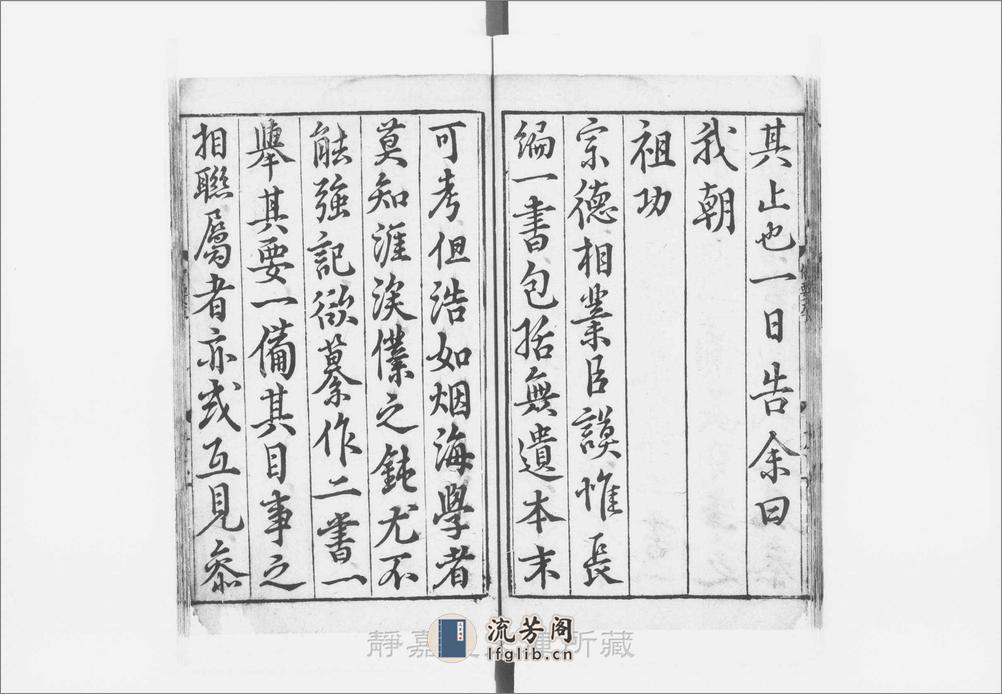 其止也一日告余曰
我朝
祖功
宗德相業臣謨惟長
編一書包括無遺本末
可考但浩如烟海學者
莫知涯涘僕之鈍尤不
能強記欲纂作二書一
舉其要一備其目事之
相聯屬者亦或互見叅
流芳阁
lfglib.cn
靜嘉 所藏